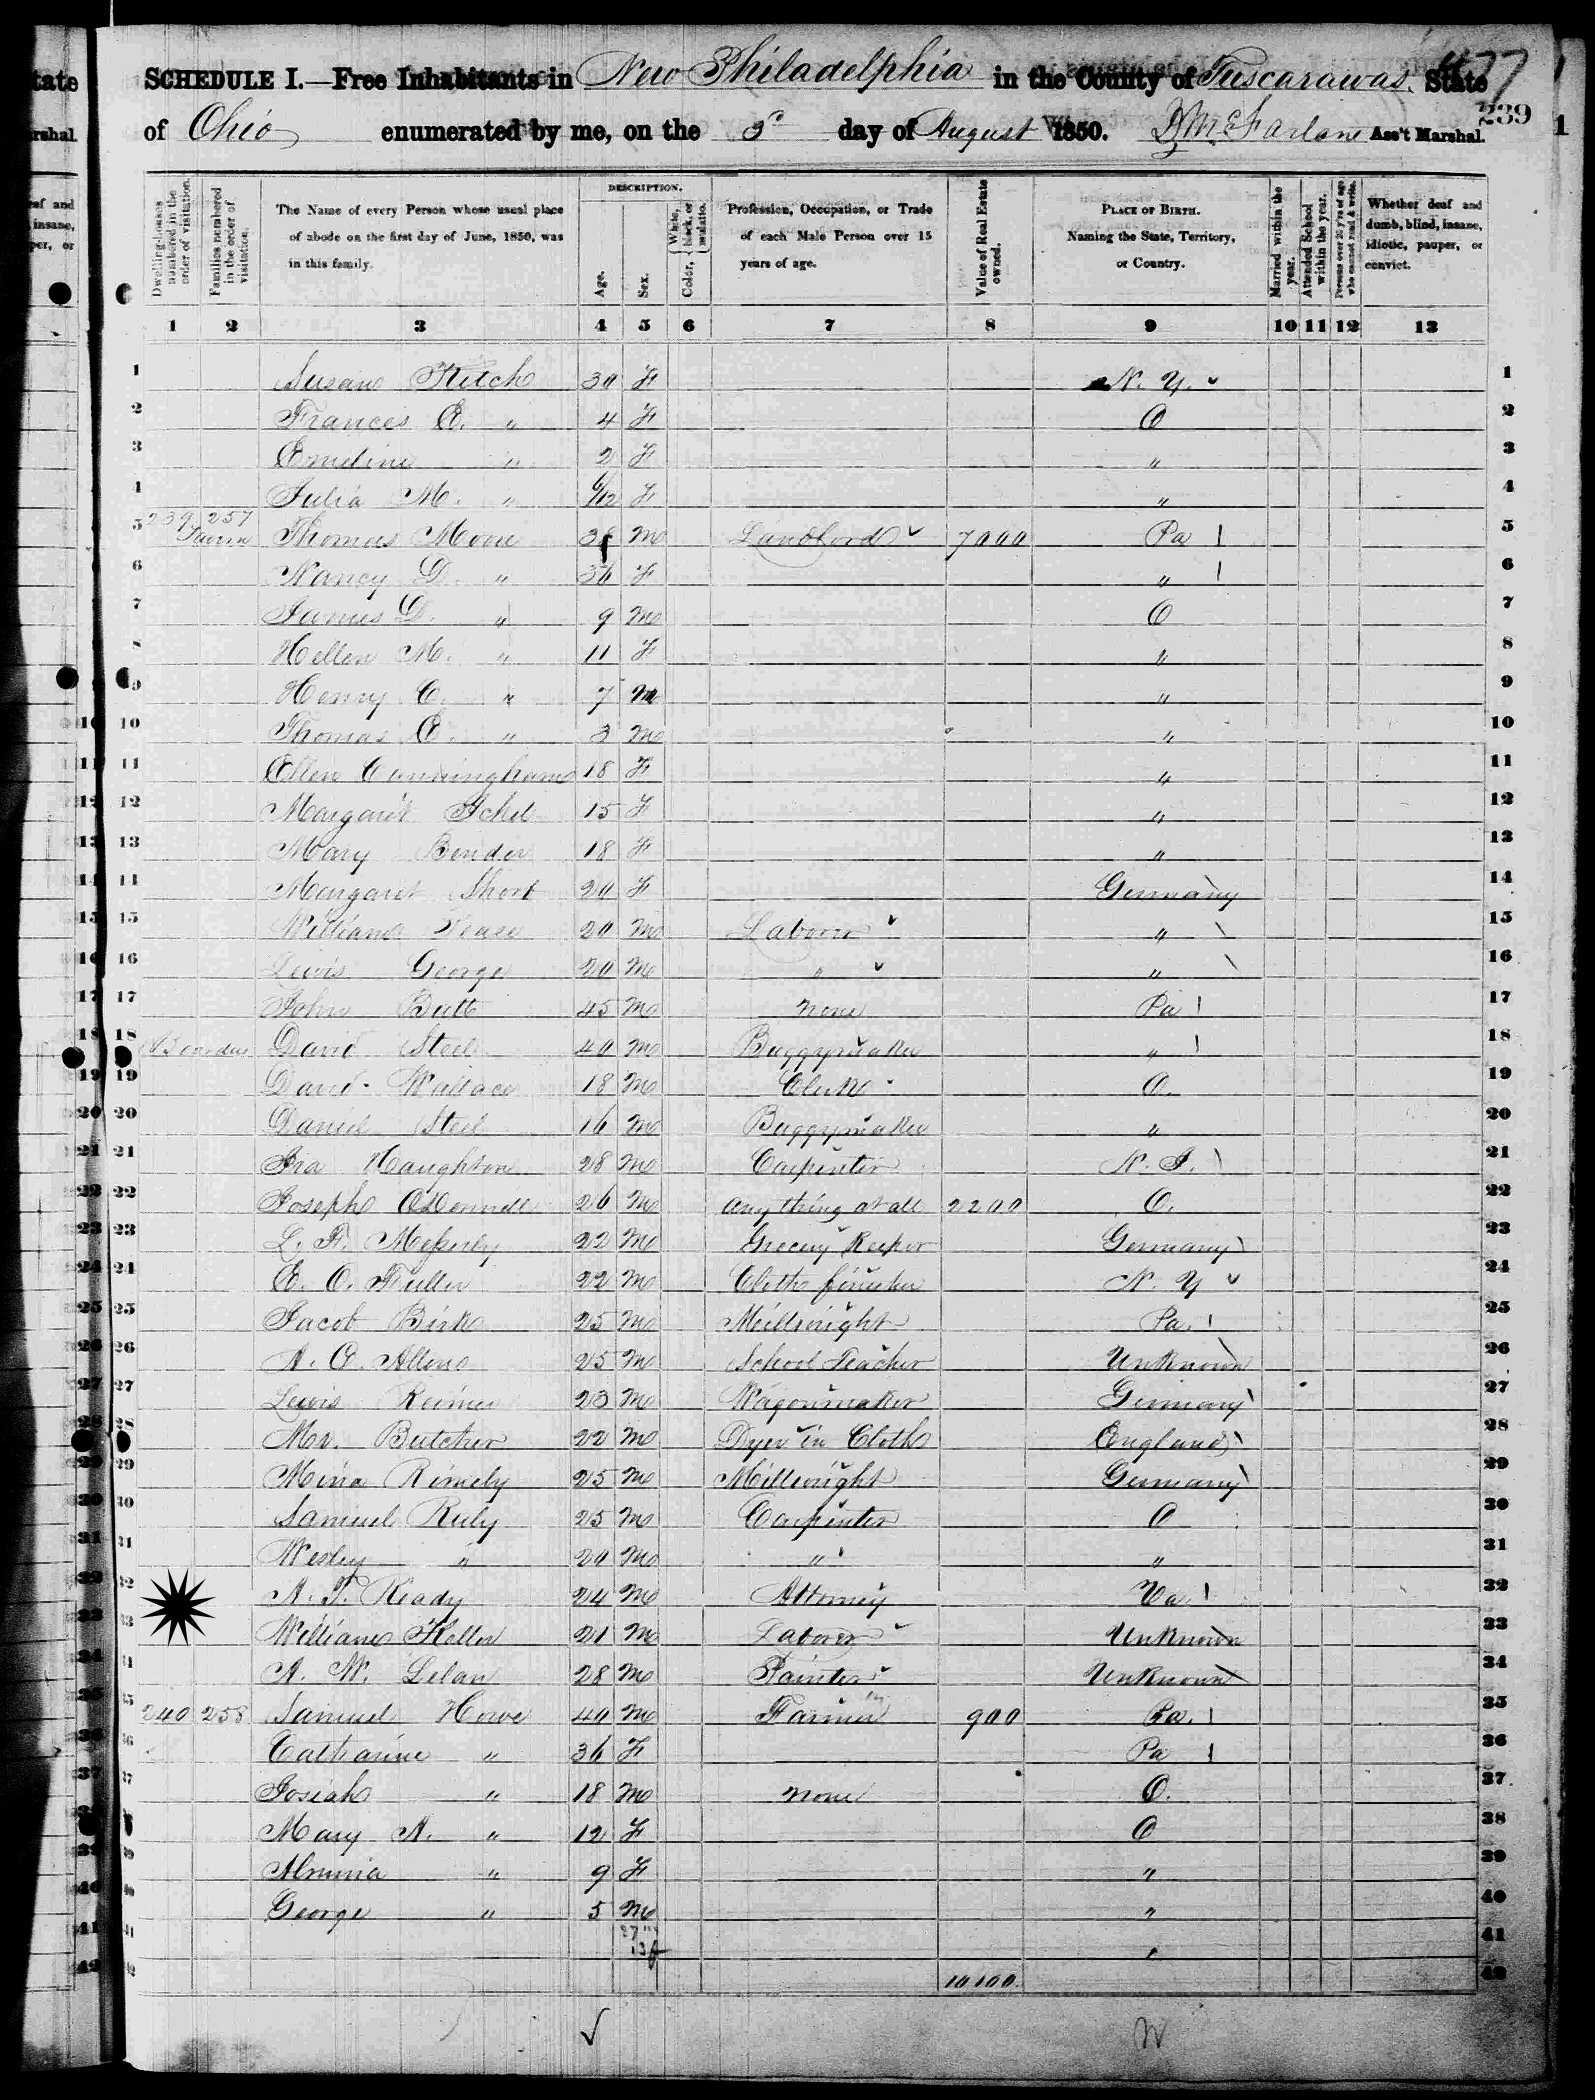 477
SCHEDULE I.—Free Inhabitants in New Philadelphia in the County of Tuscarawas. State
239
of Ohio enumerated by me, on the 5 day of August 1850. McFarlane Ass't Marshal.
Dwelling-houses numbered in the order of visitation.
Families numbered in the order of visitation.
The Name of every Person whose usual place of abode on the first day of June, 1850, was in this family.
DESCRIPTION.
Age.
Sex.
Color, White, black, or mulatto.
Profession, Occupation, or Trade of each Male Person over 15 years of age.
Value of Real Estate owned.
PLACE OF BIRTH. Naming the State, Territory, or Country.
Married within the year.
Attended School within the year.
Persons over 20 y'rs of age who cannot read & write.
Whether deaf and dumb, blind, insane, idiotic, pauper, or convict.
1 2 3 4 5 6 7 8 9 10 11 12 13
1 Susan Fitch 30 F N. Y. 1
2 Frances E. " 4 F O 2
3 Emeline " 2 F " 3
4 Julia M. " 6/12 F " 4
5 239 257 Tavern Thomas Moore M Landlord 7000 Pa 5
6 Nancy D. " 36 F " 6
7 James D. " 9 M O 7
8 Hellen M. " 11 F " 8
9 Henry C. " 7 M " 9
10 Thomas E. " 3 M " 10
11 Ellen Cunningham 18 F " 11
12 Margaret 15 F " 12
13 Mary Bender 18 F " 13
14 Margaret Short 20 F Germany 14
15 William Pease 20 M Laborer " 15
16 Lewis George 20 M " " 16
17 John Butt 45 M none Pa 17
18 Boarders David Steel 40 M Buggymaker " 18
19 David Wallace 18 M Clerk O. 19
20 Daniel Steel 16 M Buggymaker " 20
21 Ira Haughton 28 M Carpenter N. J. 21
22 Joseph ODonnell 26 M anything at all 2200 O. 22
23 L. F. 22 M Grocery Keeper Germany 23
24 E. O. Fuller 22 M Cloth finisher N. Y 24
25 Jacob Birk 25 M Millwright Pa. 25
26 A. O. Allen 25 M School Teacher Unknown 26
27 Lewis Reimer 23 M Wagonmaker Germany 27
28 Mr. Butcher 22 M Dyer in Cloth England 28
29 Mina Rimely 25 M Millwright Germany 29
30 Samuel Ruly 25 M Carpenter O 30
31 Wesley " 20 M " " 31
32 A. T. Ready 24 M Attorney Va. 32
33 William Keller 21 M Laborer Unknown 33
34 A. W. Lelan 28 M Painter Unknown 34
35 240 258 Samuel Howe 40 M Farmer 900 Pa. 35
36 Catharine " 36 F Pa 36
37 Josiah " 18 M none O. 37
38 Mary A. " 12 F O 38
39 Almina " 9 F " 39
40 George " 5 M " 40
41 27 m 13 f 41
42 10100 42